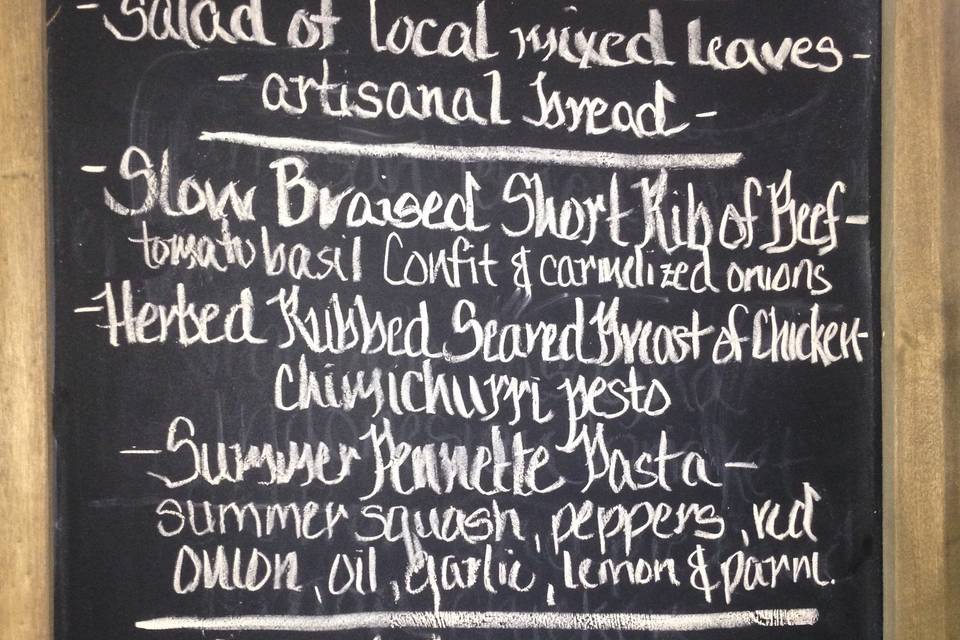 -Salad of local mixed leaves-
-artisanal bread-
-Slow Braised Short Rib of Beef-
tomato basil Confit & carmelized onions
-Herbed Rubbed Seared Breast of Chicken-
chimichurri pesto
-Summer Pennette Pasta-
summer squash, peppers, red
onion, oil, garlic, lemon & parm.